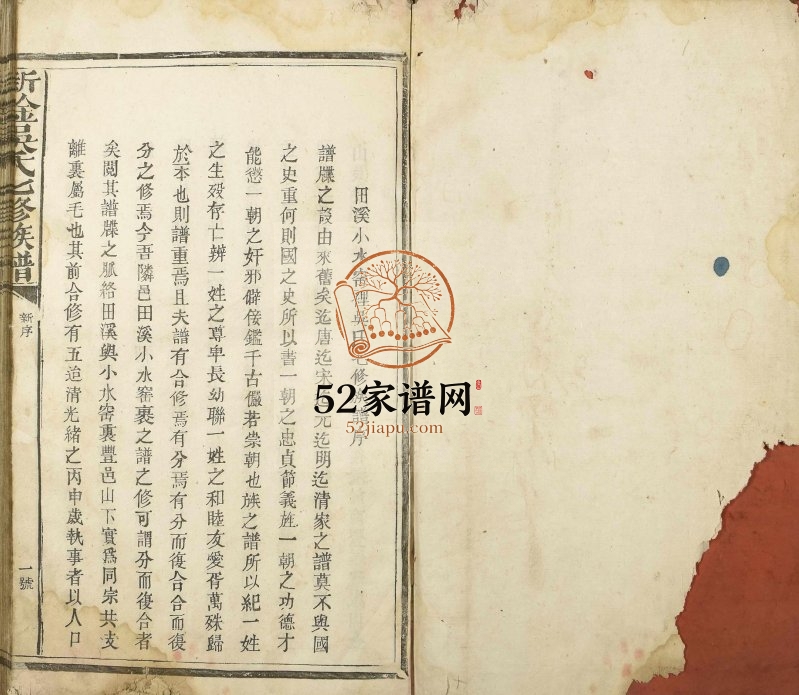 田溪小水窑裡吳氏七修族譜序
譜牒之設由來舊矣迄唐迄宋迄元迄明迄清家之譜莫不與國
之史重何則國之史所以書一朝之忠貞節義旌一朝之功德才
能懲一朝之奸邪僻佞鑑千古儼若崇朝也族之譜所以紀一姓
之生殁存亡辨一姓之尊卑長幼聯一姓之和睦友愛胥萬殊歸
於本也則譜重焉且夫譜有合修焉有分焉有分而復合合而復
分之修焉今吾隣邑田溪小水窑裏之譜之修可謂分而復合者
矣閱其譜牒之脈絡田溪與小水窑裏豐邑山下實爲同宗共支
離裏屬毛也其前合修有五迨清光緒之丙申歲執事者以人口
新淦吳氏七修族譜
新序
一號
52家谱网
52jiapu.com